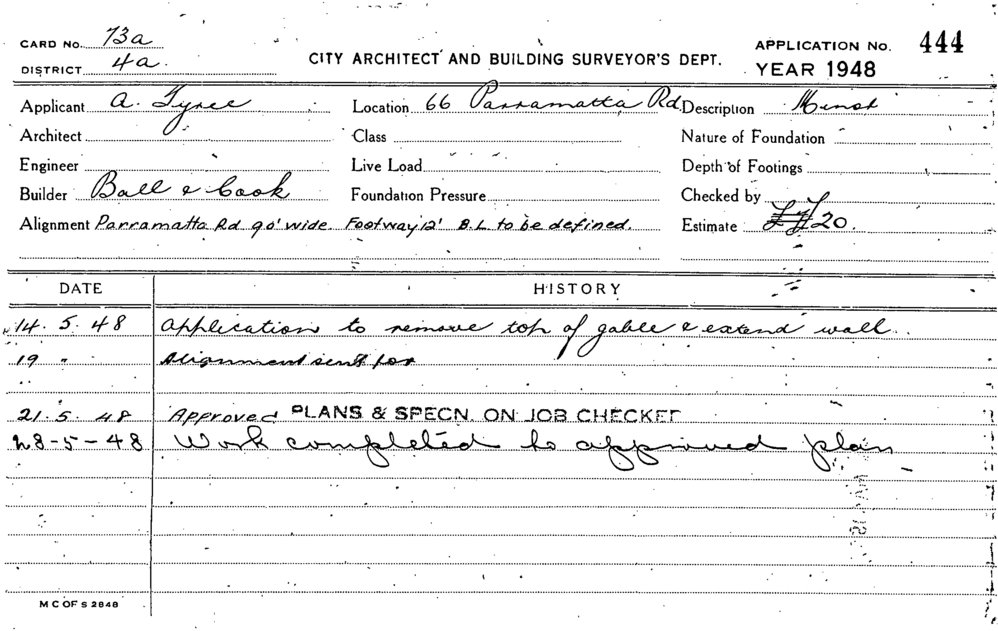 CARD No. 73a
DISTRICT 4a.
CITY ARCHITECT AND BUILDING SURVEYOR'S DEPT.
APPLICATION No. 444
YEAR 1948
Applicant A. Tyree Location 66 Parramatta Rd Description
Architect Class Nature of Foundation
Engineer Live Load Depth of Footings
Builder Ball & Cook Foundation Pressure Checked by
Alignment Parramatta Rd 90' wide. Footway 12' B.L to be defined. Estimate 20.
DATE HISTORY
14. 5. 48 Application to remove top of gable & extend wall.
19 " Alignment sent for
21. 5. 48 Approved PLANS & SPECN. ON JOB CHECKED
28-5-48 Work completed to approved plan
M C OF S 2848